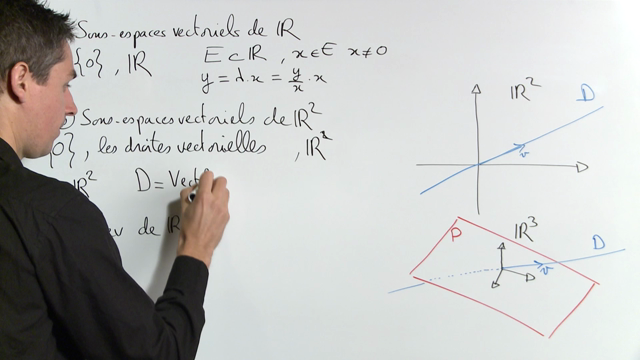 Sous-espaces vectoriels de ℝ
{0}, ℝ E⊂ℝ, x∈E x≠0
y = λ.x = y/x . x
Sous-espaces vectoriels de ℝ²
{0}, les droites vectorielles, ℝ²
ℝ² D = Vect
de ℝ
ℝ²
D
v
ℝ³
P
D
v